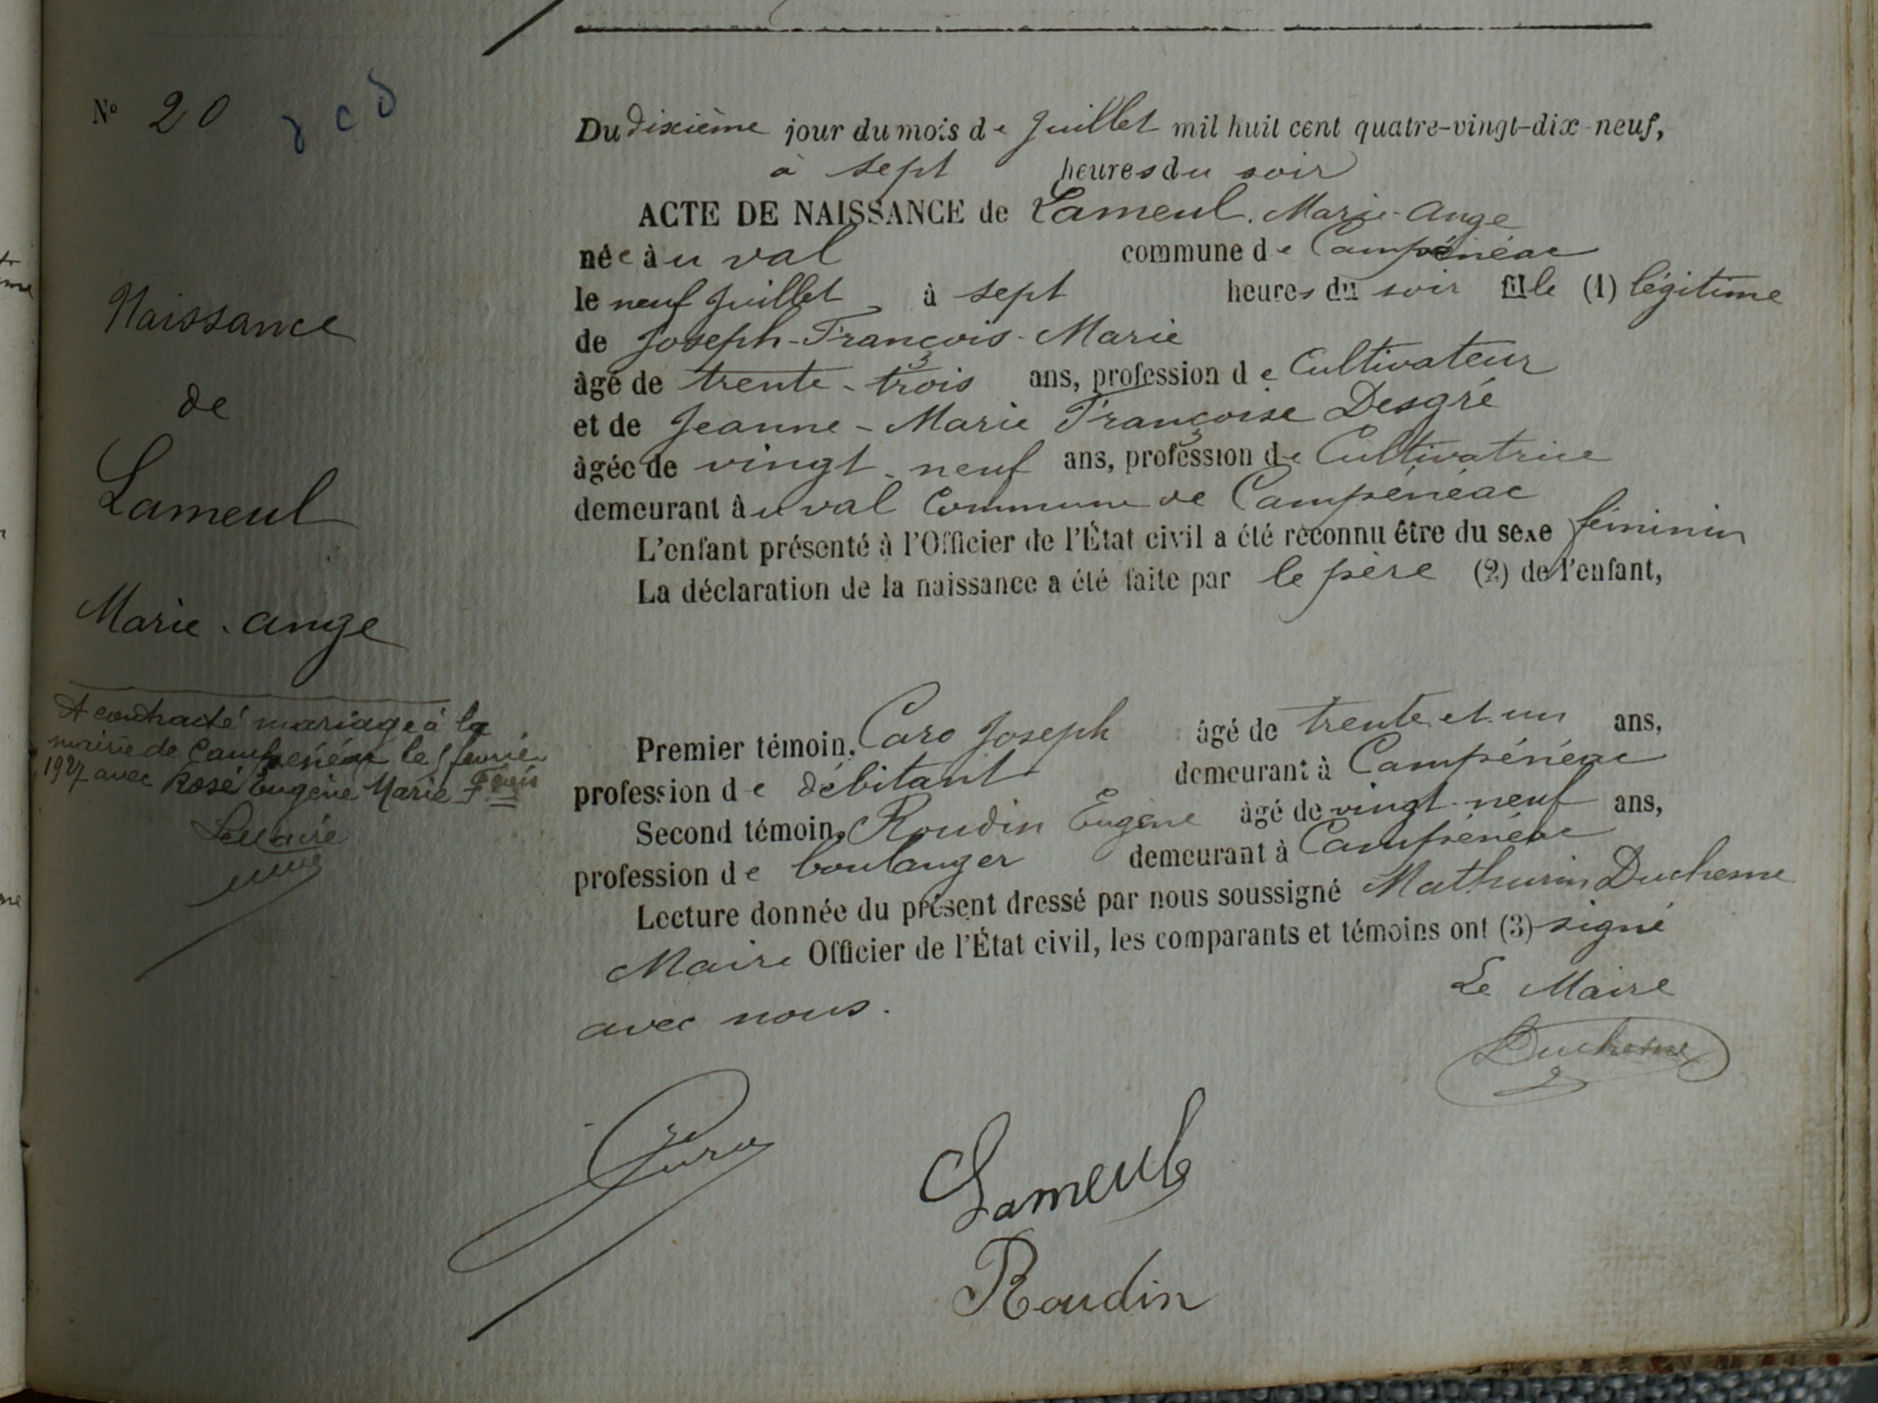 N° 20
Naissance
de
Lameul
Marie-Ange
A contracté mariage à la
mairie de Campénéac le février
1927 avec Rosé Eugène Marie Fçois
Le Maire
Du dixième jour du mois de Juillet mil huit cent quatre-vingt-dix-neuf,
à sept heures du soir
ACTE DE NAISSANCE de Lameul. Marie-Ange
née à u val commune de Campénéac
le neuf Juillet à sept heures du soir fille (1) légitime
de Joseph-François-Marie
âgé de trente-trois ans, profession de Cultivateur
et de Jeanne-Marie Françoise Desgré
âgée de vingt-neuf ans, profession de Cultivatrice
demeurant à u val Commune de Campénéac
L'enfant présenté à l'Officier de l'État civil a été reconnu être du sexe féminin
La déclaration de la naissance a été faite par le père (2) de l'enfant,
Premier témoin, Caro Joseph âgé de trente et un ans,
profession de débitant demeurant à Campénéac
Second témoin, Roudin Eugène âgé de vingt-neuf ans,
profession de boulanger demeurant à Campénéac
Lecture donnée du présent dressé par nous soussigné Mathurin Duchesne
Maire Officier de l'État civil, les comparants et témoins ont (3) signé
avec nous.
Le Maire
Duchesne
Caro
Lameul
Roudin